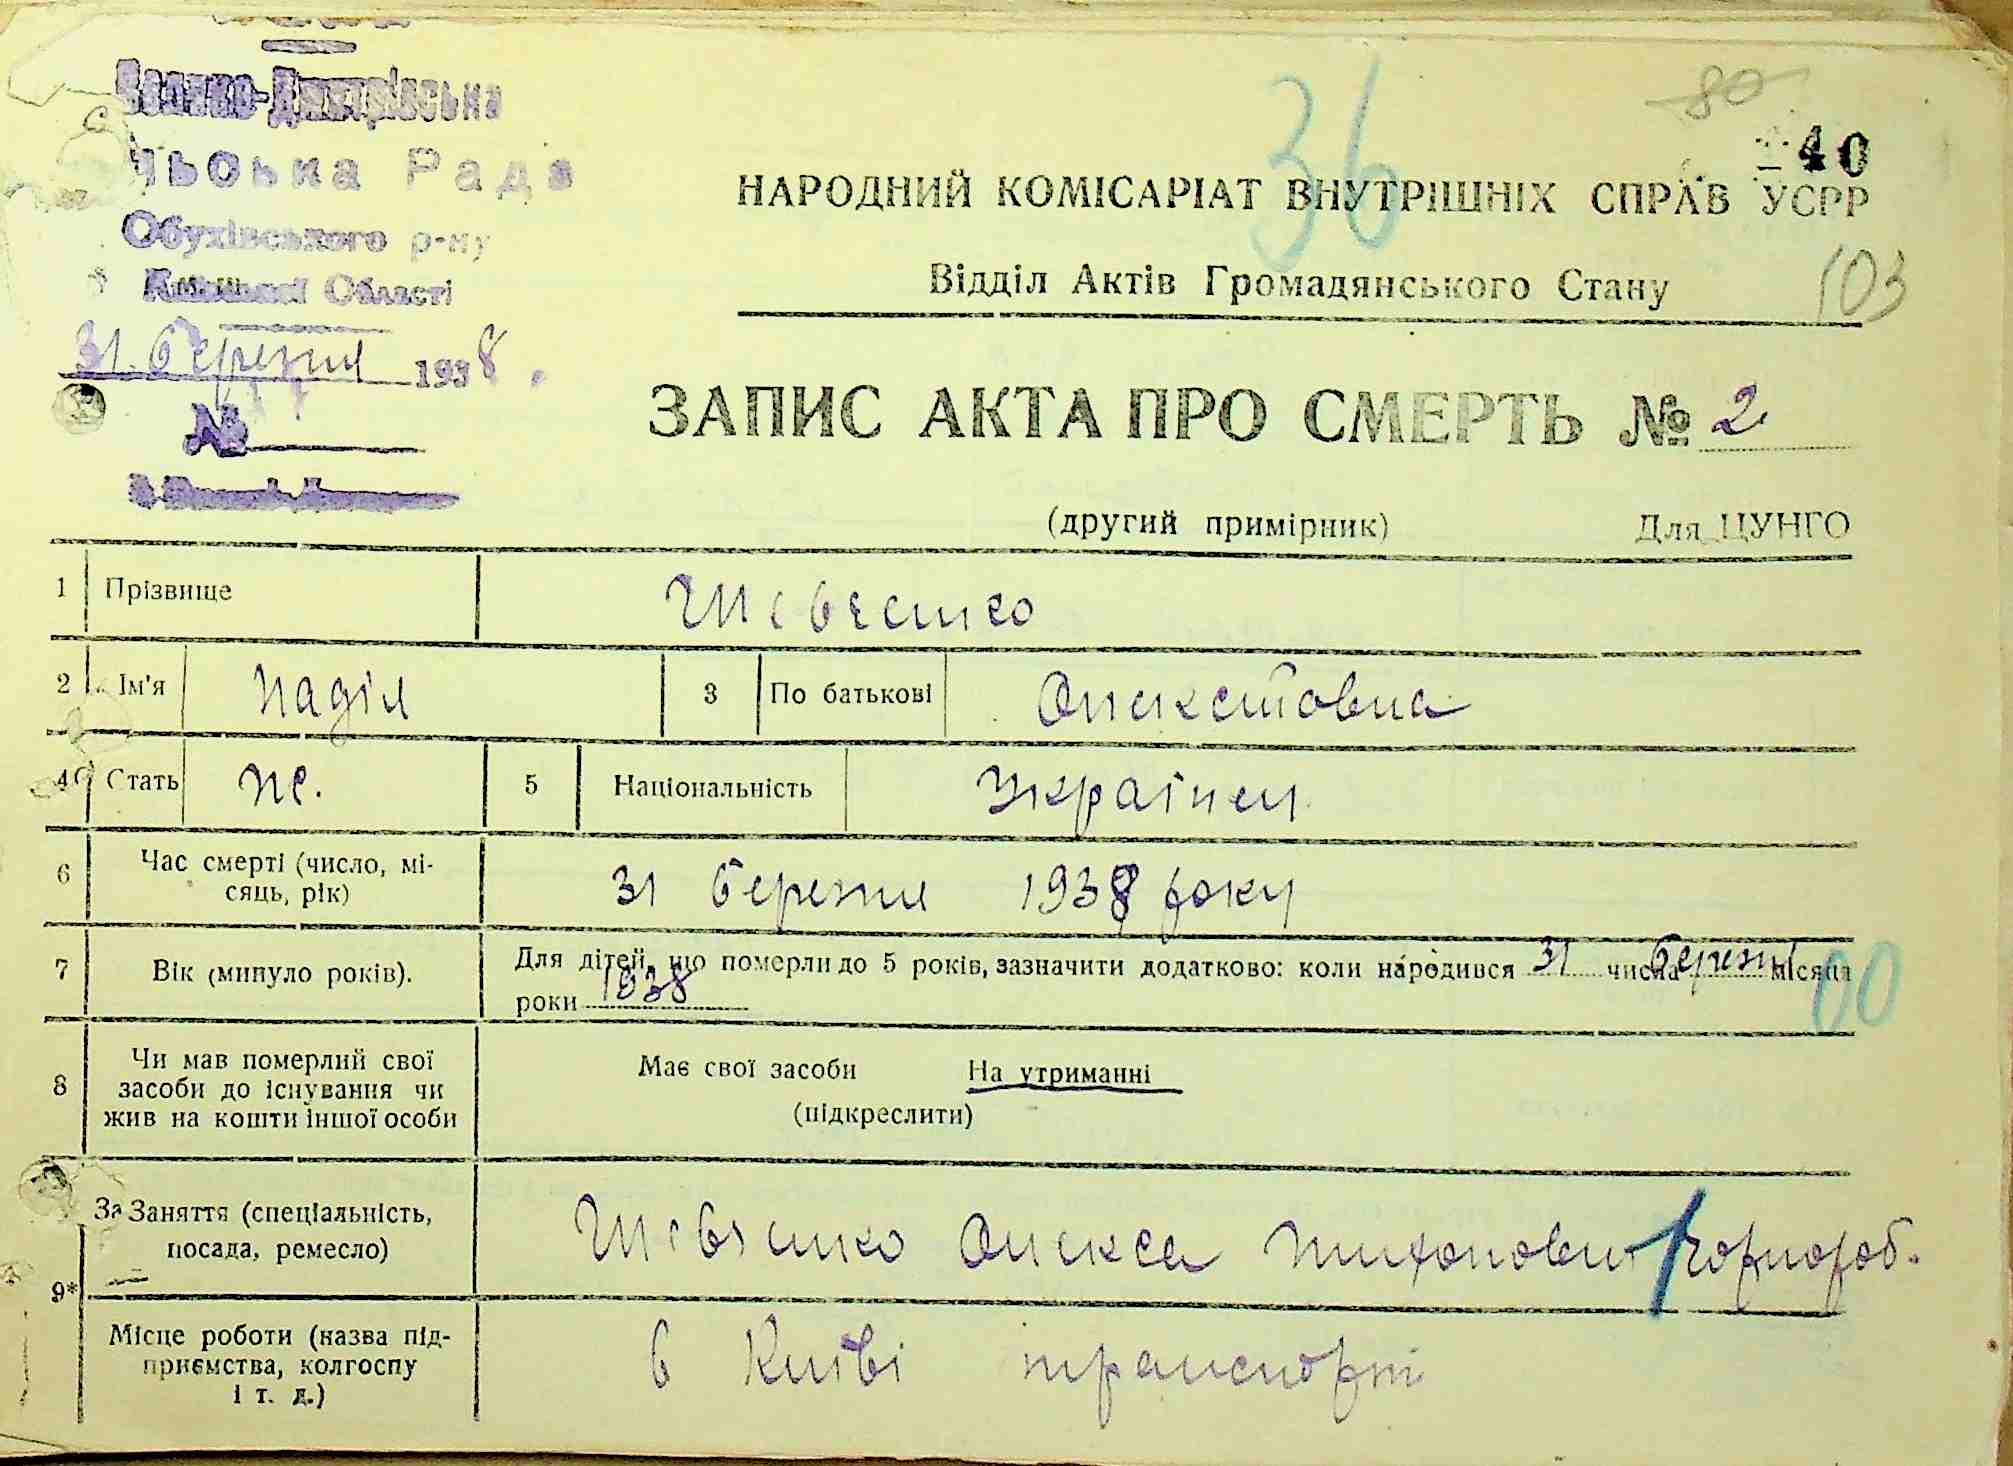 Велико-Дмитрівська
Рада
Обухівського р-ну
Київської Області
31 березня 1938
№
36
80
40
НАРОДНИЙ КОМІСАРІАТ ВНУТРІШНІХ СПРАВ УСРР
Відділ Актів Громадянського Стану
103
ЗАПИС АКТА ПРО СМЕРТЬ № 2
(другий примірник) Для ЦУНГО
1 Прізвище Шевченко
2 Ім'я Надія 3 По батькові Олексіївна
4 Стать 5 Національність
6 Час смерті (число, мі-
сяць, рік) 31 березня 1938 року
7 Вік (минуло років). Для дітей, що померли до 5 років, зазначити додатково: коли народився 31 числа березня місяця
роки 1938
00
8 Чи мав померлий свої
засоби до існування чи
жив на кошти іншої особи
Має свої засоби На утриманні
(підкреслити)
9* Заняття (спеціальність,
посада, ремесло) Шевченко Олекса Тихонович чорнороб.
Місце роботи (назва під-
приємства, колгоспу
і т. д.) в Київі транспорт